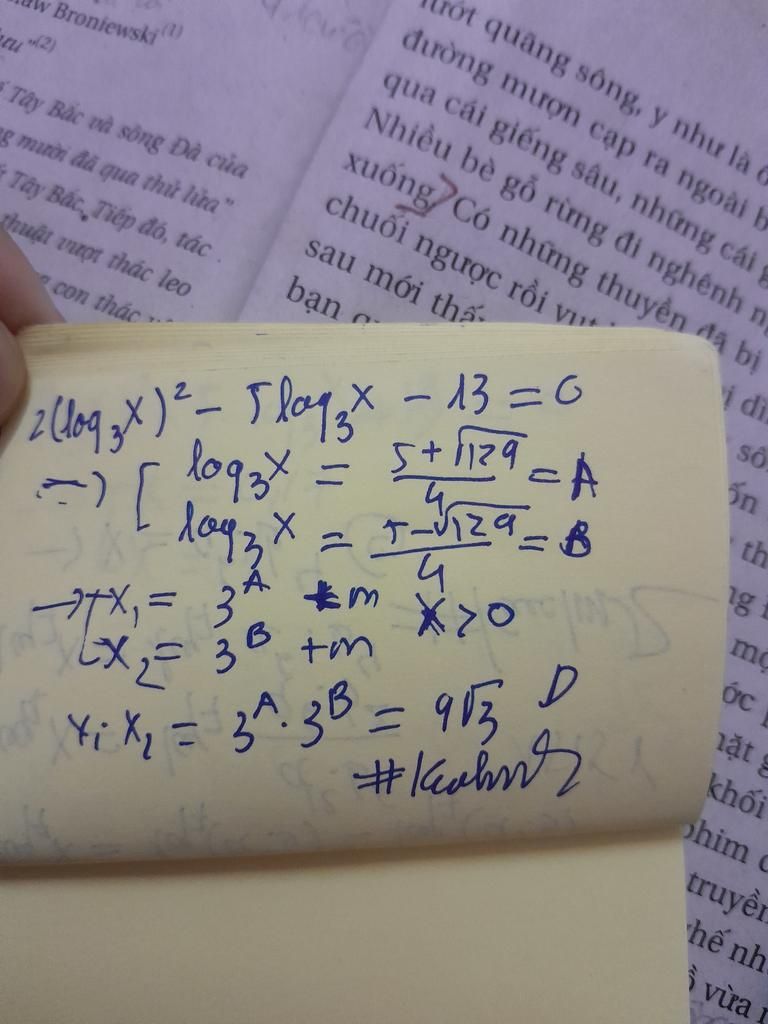 aw Broniewski (1)
ưu"(2)
Tây Bắc và sông Đà của
g mười đã qua thử lửa"
Tây Bắc. Tiếp đó, tác
thuật vượt thác leo
con thác
lướt quãng sông, y như là ô
đường mượn cạp ra ngoài b
qua cái giếng sâu, những cái g
Nhiều bè gỗ rừng đi nghênh n
xuống. Có những thuyền đã bị
chuối ngược rồi vụt
sau mới thấ
bạn
2(log₃x)² - 5log₃x - 13 = 0
=) [ log₃x = (5+√129)/4 = A
log₃x = (5-√129)/4 = B
→ x₁ = 3^A tm x > 0
x₂ = 3^B tm
x₁.x₂ = 3^A.3^B = 9√3 D
ị dì
sôn
ốn
th
mộ
ớc
mặt g
khối
phim
truyền
hế nh
ồ vừa